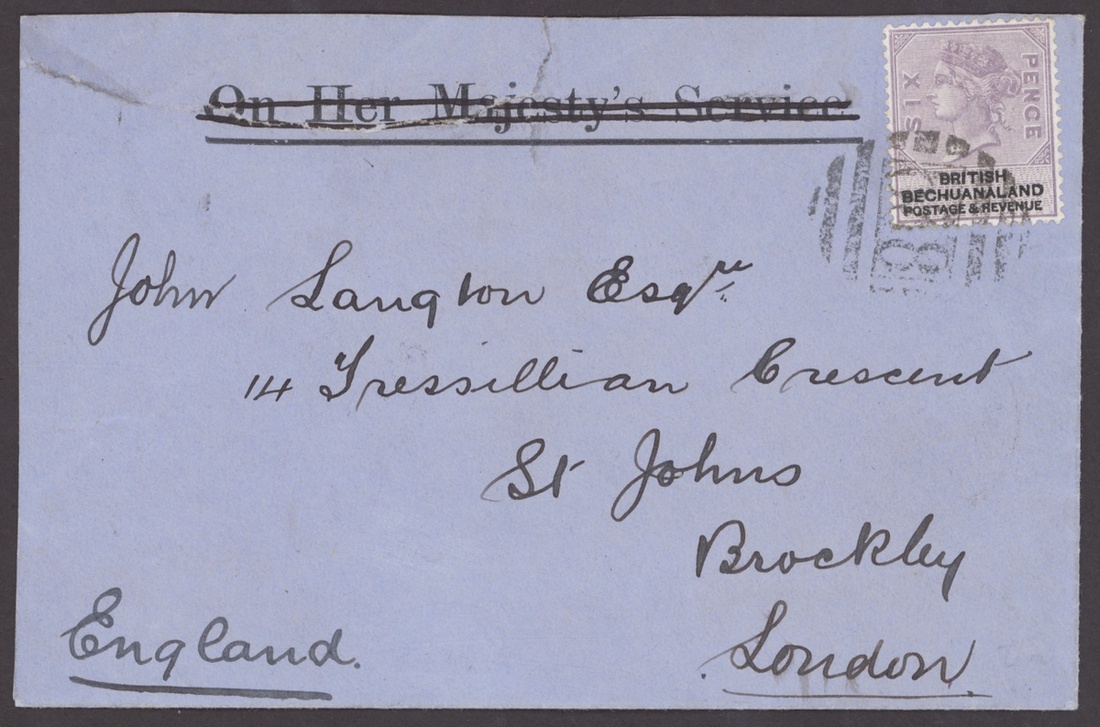 On Her Majesty's Service.
SIX PENCE
BRITISH
BECHUANALAND
POSTAGE & REVENUE
8
John Langton Esqre
14 Tressillian Crescent
St Johns
Brockley
London.
England.